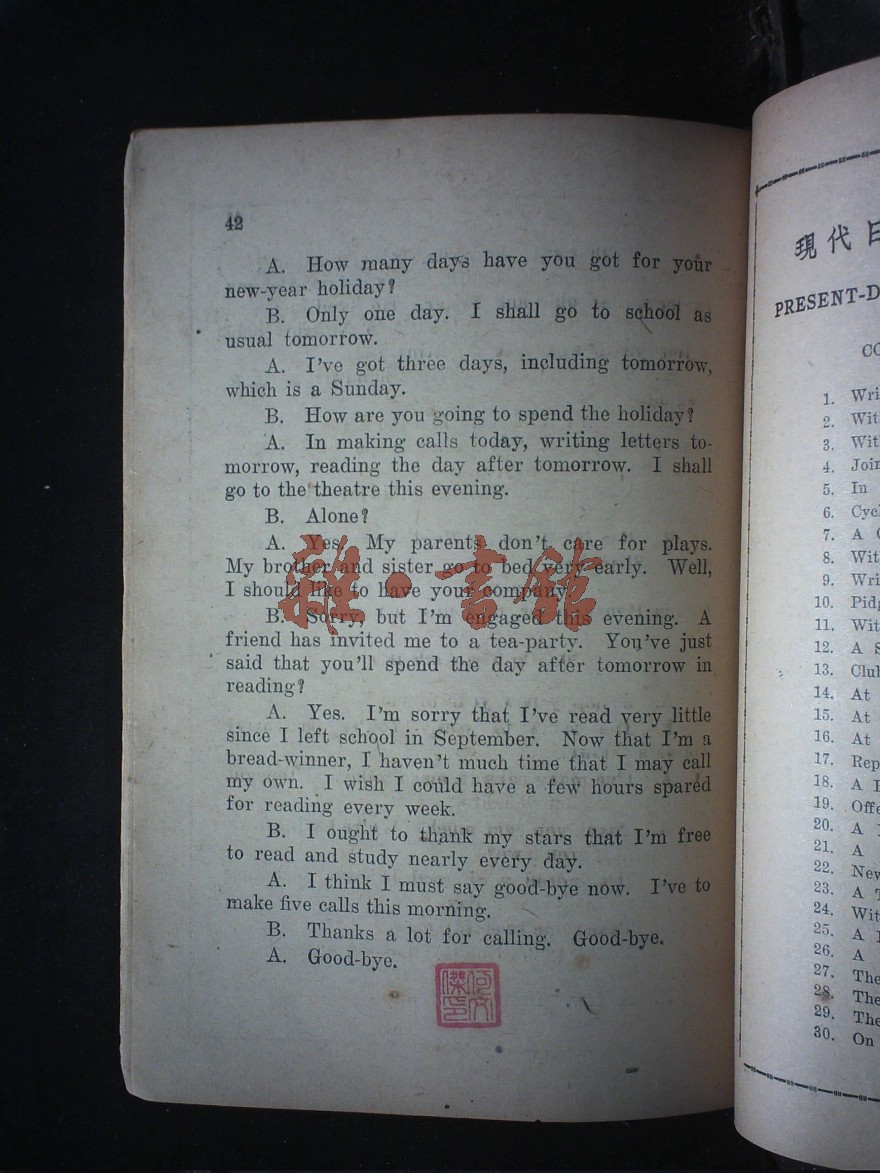 42
A. How many days have you got for your
new-year holiday?
B. Only one day. I shall go to school as
usual tomorrow.
A. I've got three days, including tomorrow,
which is a Sunday.
B. How are you going to spend the holiday?
A. In making calls today, writing letters to-
morrow, reading the day after tomorrow. I shall
go to the theatre this evening.
B. Alone?
A. Yes. My parents don't care for plays.
My brother and sister go to bed very early. Well,
I should like to have your company.
B. Sorry, but I'm engaged this evening. A
friend has invited me to a tea-party. You've just
said that you'll spend the day after tomorrow in
reading?
A. Yes. I'm sorry that I've read very little
since I left school in September. Now that I'm a
bread-winner, I haven't much time that I may call
my own. I wish I could have a few hours spared
for reading every week.
B. I ought to thank my stars that I'm free
to read and study nearly every day.
A. I think I must say good-bye now. I've to
make five calls this morning.
B. Thanks a lot for calling. Good-bye.
A. Good-bye.
雜·書館
現代日
PRESENT-D
CO
1. Wri
2. Wit
3. Wit
4. Joir
5. In
6. Cycl
7. A
8. Wit
9. Wri
10. Pidg
11. Wit
12. A S
13. Clul
14. At
15. At
16. At
17. Rep
18. A
19. Offe
20. A
21. A
22. New
23. A
24. Wit
25. A
26. A
27. The
28. The
29. The
30. On